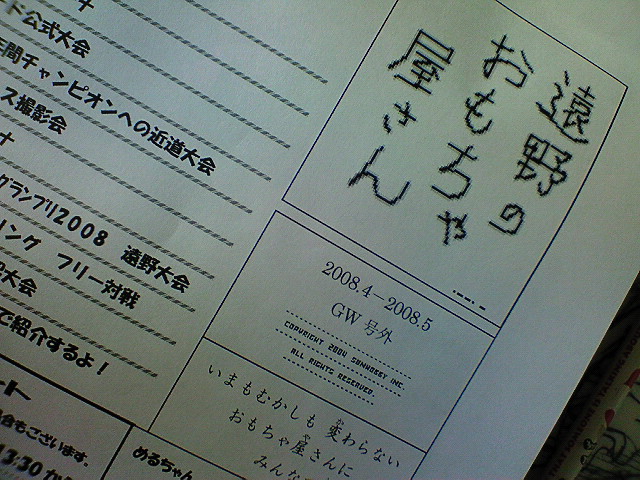 遠野の
おもちゃ
屋さん
2008.4－2008.5
GW 号外
COPYRIGHT 2004 SUNHOBBY INC.
ALL RIGHTS RESERVED.
いまもむかしも 変わらない
おもちゃ屋さんに
みんな
ド公式大会
年間チャンピオンへの近道大会
ス撮影会
グランプリ2008 遠野大会
リング フリー対戦
大会
で紹介するよ！
ート
合もございます。
13:30 か
めるちゃん